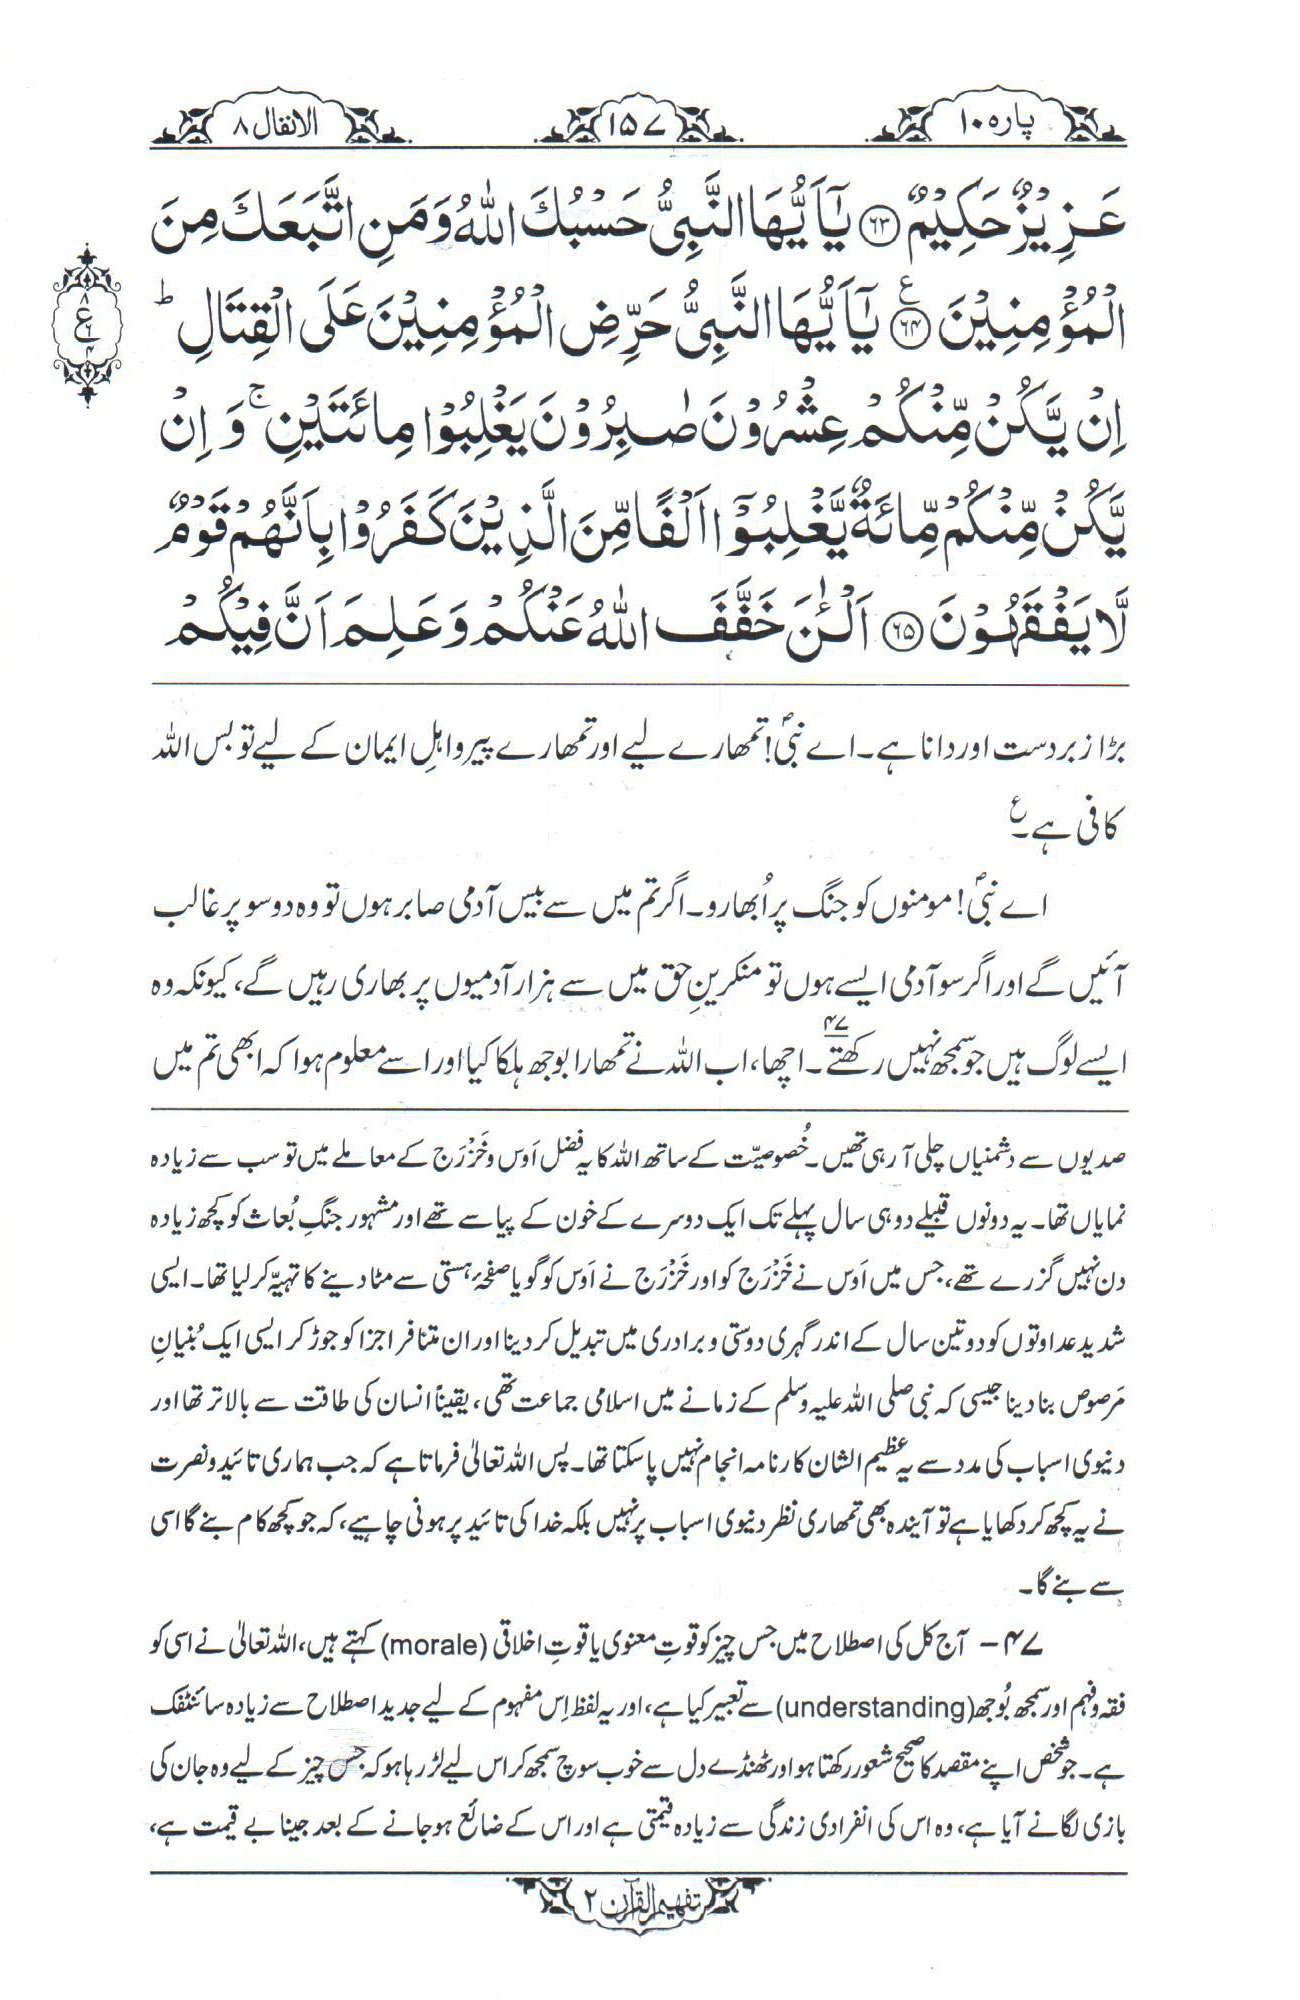 پارہ ۱۰
۱۵۷
الانفال ۸
عَزِيْزٌ حَكِيْمٌ ﴿۶۳﴾ يٰۤاَيُّهَا النَّبِيُّ حَسْبُكَ اللّٰهُ وَمَنِ اتَّبَعَكَ مِنَ
الْمُؤْمِنِيْنَ ﴿۶۴﴾ ع يٰۤاَيُّهَا النَّبِيُّ حَرِّضِ الْمُؤْمِنِيْنَ عَلَى الْقِتَالِ ؕ
اِنْ يَّكُنْ مِّنْكُمْ عِشْرُوْنَ صٰبِرُوْنَ يَغْلِبُوْا مِائَتَيْنِ ۚ وَ اِنْ
يَّكُنْ مِّنْكُمْ مِّائَةٌ يَّغْلِبُوْۤا اَلْفًا مِّنَ الَّذِيْنَ كَفَرُوْا بِاَنَّهُمْ قَوْمٌ
لَّا يَفْقَهُوْنَ ﴿۶۵﴾ اَلْـٰٔنَ خَفَّفَ اللّٰهُ عَنْكُمْ وَعَلِمَ اَنَّ فِيْكُمْ
۸
ع
۶
۴
بڑا زبردست اور دانا ہے۔ اے نبیؐ! تمھارے لیے اور تمھارے پیرو اہلِ ایمان کے لیے تو بس اللہ
کافی ہے۔ ع
اے نبیؐ! مومنوں کو جنگ پر اُبھارو۔ اگر تم میں سے بیس آدمی صابر ہوں تو وہ دو سو پر غالب
آئیں گے اور اگر سو آدمی ایسے ہوں تو منکرینِ حق میں سے ہزار آدمیوں پر بھاری رہیں گے، کیونکہ وہ
ایسے لوگ ہیں جو سمجھ نہیں رکھتے۔۴۷ اچھا، اب اللہ نے تمھارا بوجھ ہلکا کیا اور اسے معلوم ہوا کہ ابھی تم میں
صدیوں سے دشمنیاں چلی آ رہی تھیں۔ خُصوصیّت کے ساتھ اللہ کا یہ فضل اَوس و خَزْرَج کے معاملے میں تو سب سے زیادہ
نمایاں تھا۔ یہ دونوں قبیلے دو ہی سال پہلے تک ایک دوسرے کے خون کے پیاسے تھے اور مشہور جنگِ بُعاث کو کچھ زیادہ
دن نہیں گزرے تھے، جس میں اَوس نے خَزْرَج کو اور خَزْرَج نے اَوس کو گویا صفحۂ ہستی سے مٹا دینے کا تہیّہ کر لیا تھا۔ ایسی
شدید عداوتوں کو دو تین سال کے اندر گہری دوستی و برادری میں تبدیل کر دینا اور ان متنافر اجزا کو جوڑ کر ایسی ایک بُنیانِ
مَرصوص بنا دینا جیسی کہ نبی صلی اللہ علیہ وسلم کے زمانے میں اسلامی جماعت تھی، یقیناً انسان کی طاقت سے بالاتر تھا اور
دنیوی اسباب کی مدد سے یہ عظیم الشان کارنامہ انجام نہیں پا سکتا تھا۔ پس اللہ تعالیٰ فرماتا ہے کہ جب ہماری تائید و نصرت
نے یہ کچھ کر دکھایا ہے تو آیندہ بھی تمھاری نظر دنیوی اسباب پر نہیں بلکہ خدا کی تائید پر ہونی چاہیے، کہ جو کچھ کام بنے گا اسی
سے بنے گا۔
۴۷ – آج کل کی اصطلاح میں جس چیز کو قوتِ معنوی یا قوتِ اخلاقی (morale) کہتے ہیں، اللہ تعالیٰ نے اسی کو
فقہ و فہم اور سمجھ بُوجھ (understanding) سے تعبیر کیا ہے، اور یہ لفظ اِس مفہوم کے لیے جدید اصطلاح سے زیادہ سائنٹفک
ہے۔ جو شخص اپنے مقصد کا صحیح شعور رکھتا ہو اور ٹھنڈے دل سے خوب سوچ سمجھ کر اس لیے لڑ رہا ہو کہ جس چیز کے لیے وہ جان کی
بازی لگانے آیا ہے، وہ اس کی انفرادی زندگی سے زیادہ قیمتی ہے اور اس کے ضائع ہو جانے کے بعد جینا بے قیمت ہے،
تفہیم القرآن ۲